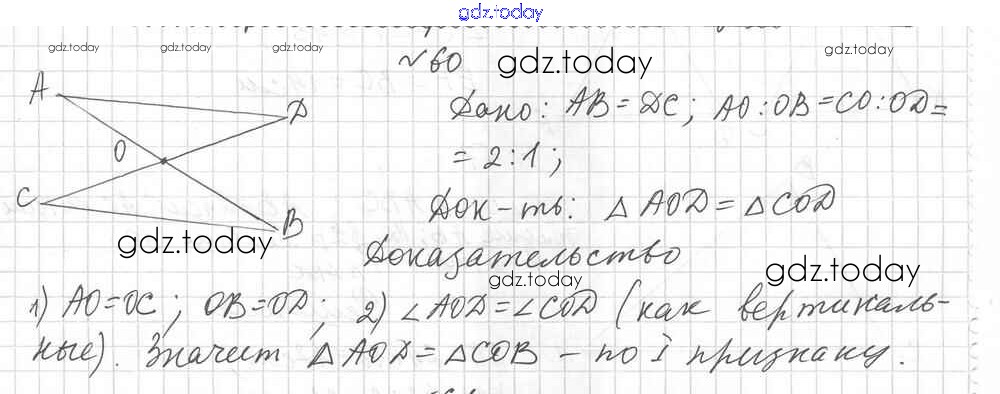 gdz.today
gdz.today gdz.today gdz.today gdz.today
№60 gdz.today
A
D
O
C
B
Дано: AB = DC; AO:OB = CO:OD =
= 2:1;
Док-ть: △ AOD = △ COD
gdz.today
Доказательство
gdz.today gdz.today
1) AO=OC; OB=OD; 2) ∠AOD=∠COD (как вертикаль-
ные). Значит △ AOD = △COB – по I признаку.